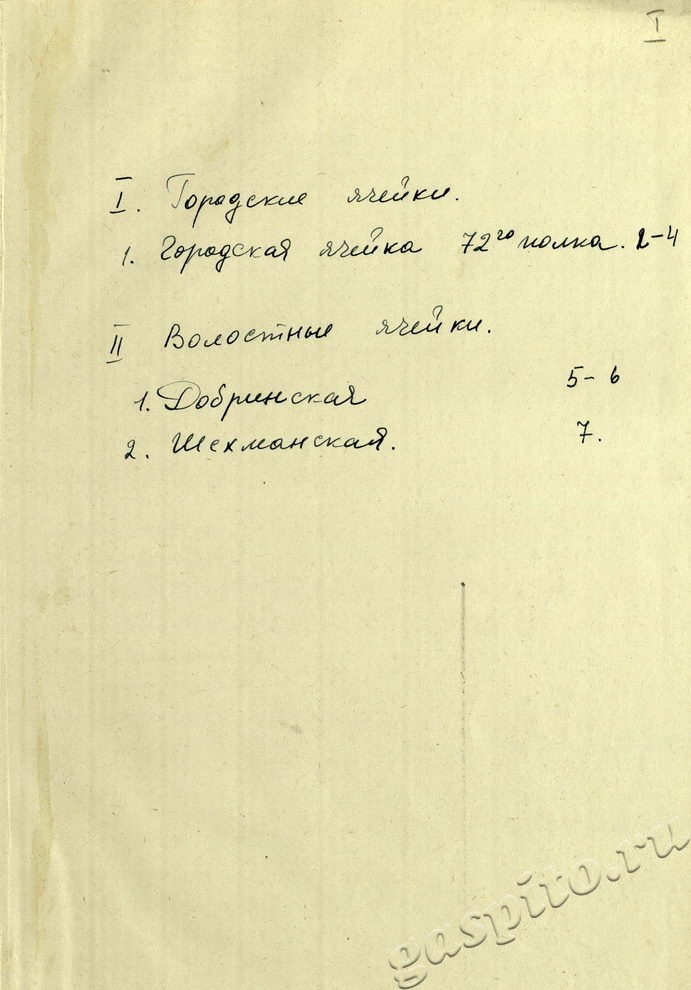 I
I. Городские ячейки.
1. Городская ячейка 72го полка. 2-4
II Волостные ячейки.
1. Добринская 5-6
2. Шехманская. 7.
gaspito.ru